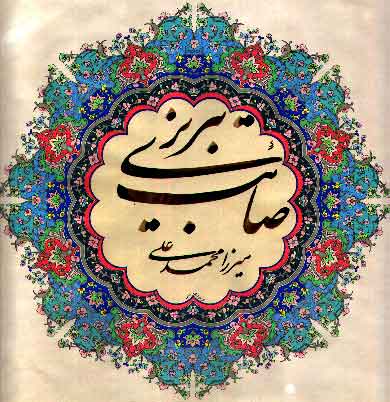 صائب تبریزی
میرزا محمد علی